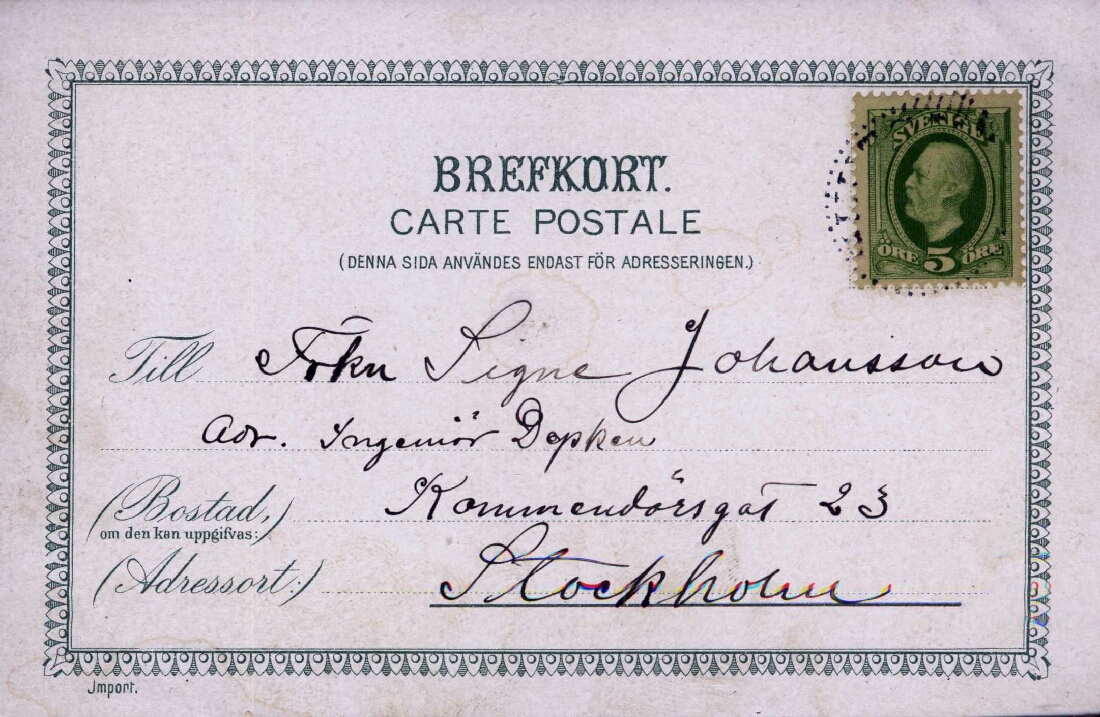 BREFKORT.
CARTE POSTALE
(DENNA SIDA ANVÄNDES ENDAST FÖR ADRESSERINGEN.)
SVERIGE
ÖRE 5 ÖRE
Till Frkn Signe Johansson
Adr. Ingeniör Depken
(Bostad,) Kommendörsgat 23
om den kan uppgifvas:
(Adressort:) Stockholm
Import.